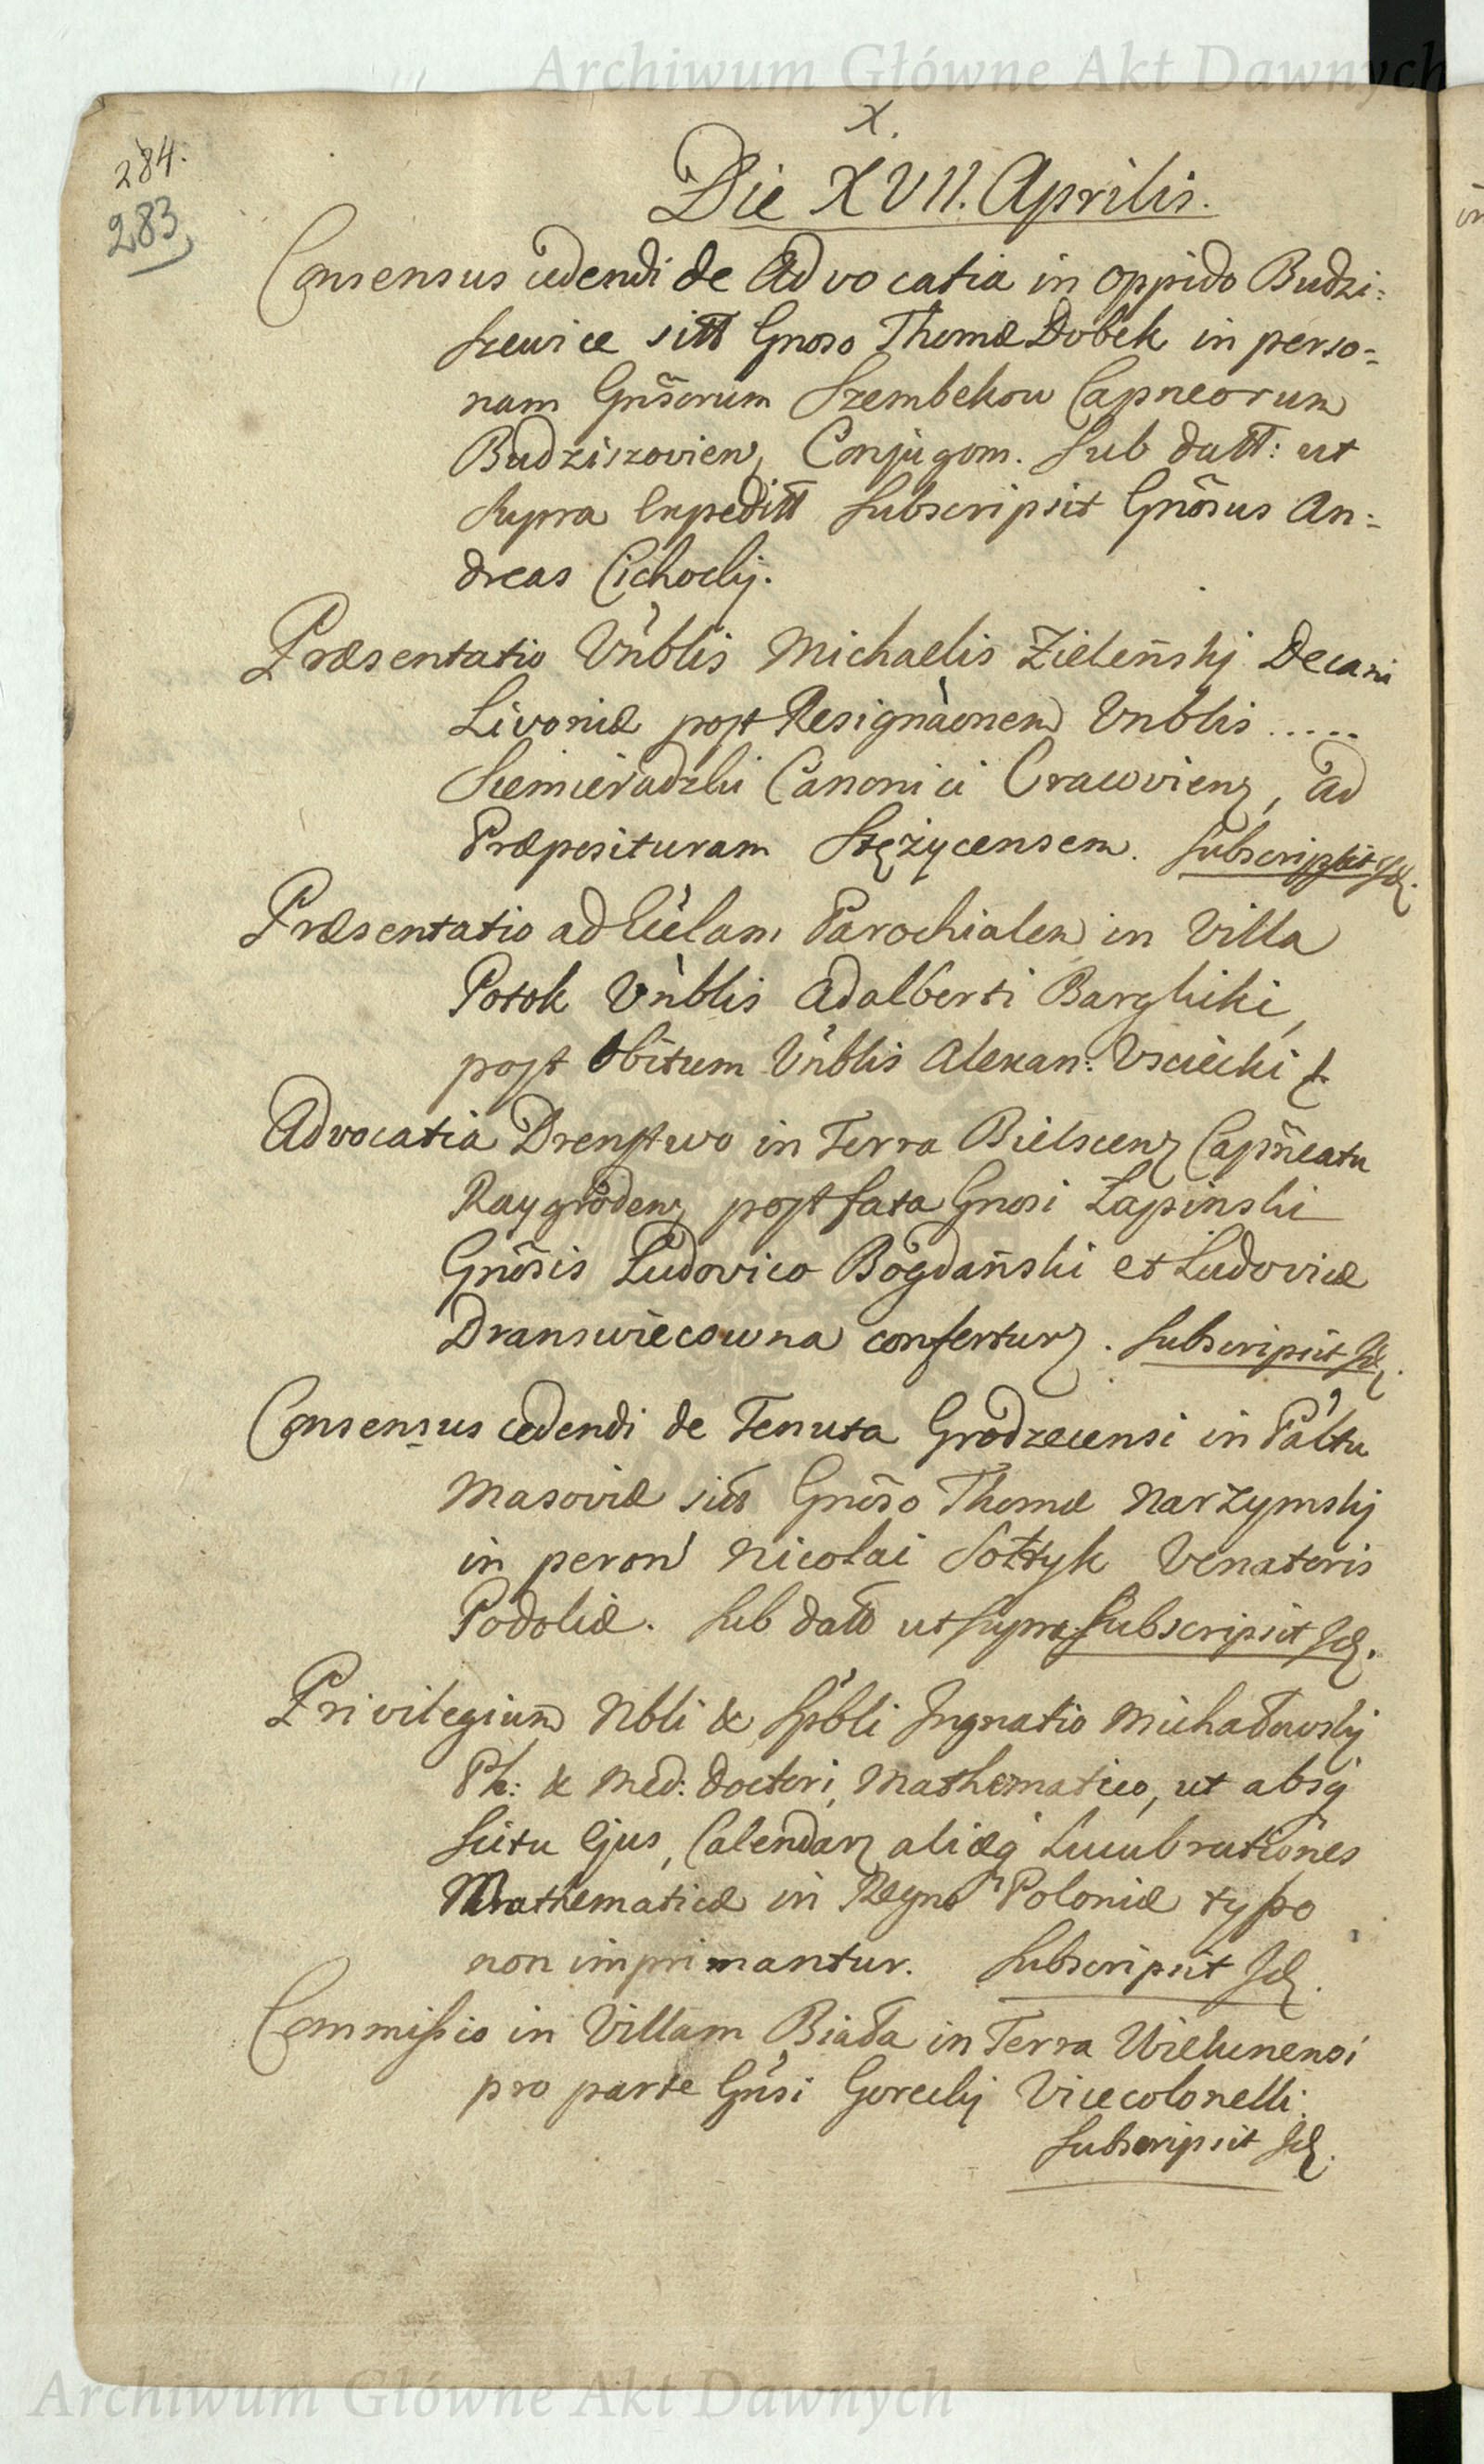 Archiwum Główne Akt Dawnych
X.
284.
283
Die XVII. Aprilis.
Consensus cedendi de Advocatia in oppido Budzi:
szewice sitt Gnoso Thomæ Dobek in perso=
nam Gnsorum Szembekow Capneorum
Budziszovien, Conjugom. Sub datt: ut
supra Expeditt subscripsit Gnosus An:
dreas Cichockj.
Præsentatio Vnblis Michaelis Zielenskj Decani
Livoniæ post Resignaonem Vnblis .....
Siemieradzki Canonici Cracovien, ad
Præposituram Stężycensem. Subscripsit Id.
Præsentatio ad Eccłam Parochialem in Villa
Potok Vnblis Adalberti Bargluki,
post Obitum Vnblis Alexan: Vsciecki
Advocatia Drenstwo in Terra Bielscen Capneatu
Raygroden post fata Gnosi Łapinski
Gnosis Ludovico Bogdanski et Ludovicæ
Dranswiecowna confertur. Subscripsit Id.
Consensus cedendi de Tenuta Grodzecensi in Paltu
Masoviæ sitt Gnoso Thomæ Narzymskj
in person Nicolai Sołtyk Venatoris
Podoliæ. Sub datt ut supra. Subscripsit Id.
Privilegium Nbli & Spbli Ingnatio Michałowskj
Ph: & Med: Doctori, Mathematico, ut absq
scitu Ejus, Calendar aliæq Lucubrationes
Mathematicæ in Regno Poloniæ typo
non imprimantur. Subscripsit Id.
Commissio in Villam Biała in Terra Wielunensi
pro parte Gnsi Goreckj Vicecolonelli.
Subscripsit Id.
Archiwum Główne Akt Dawnych